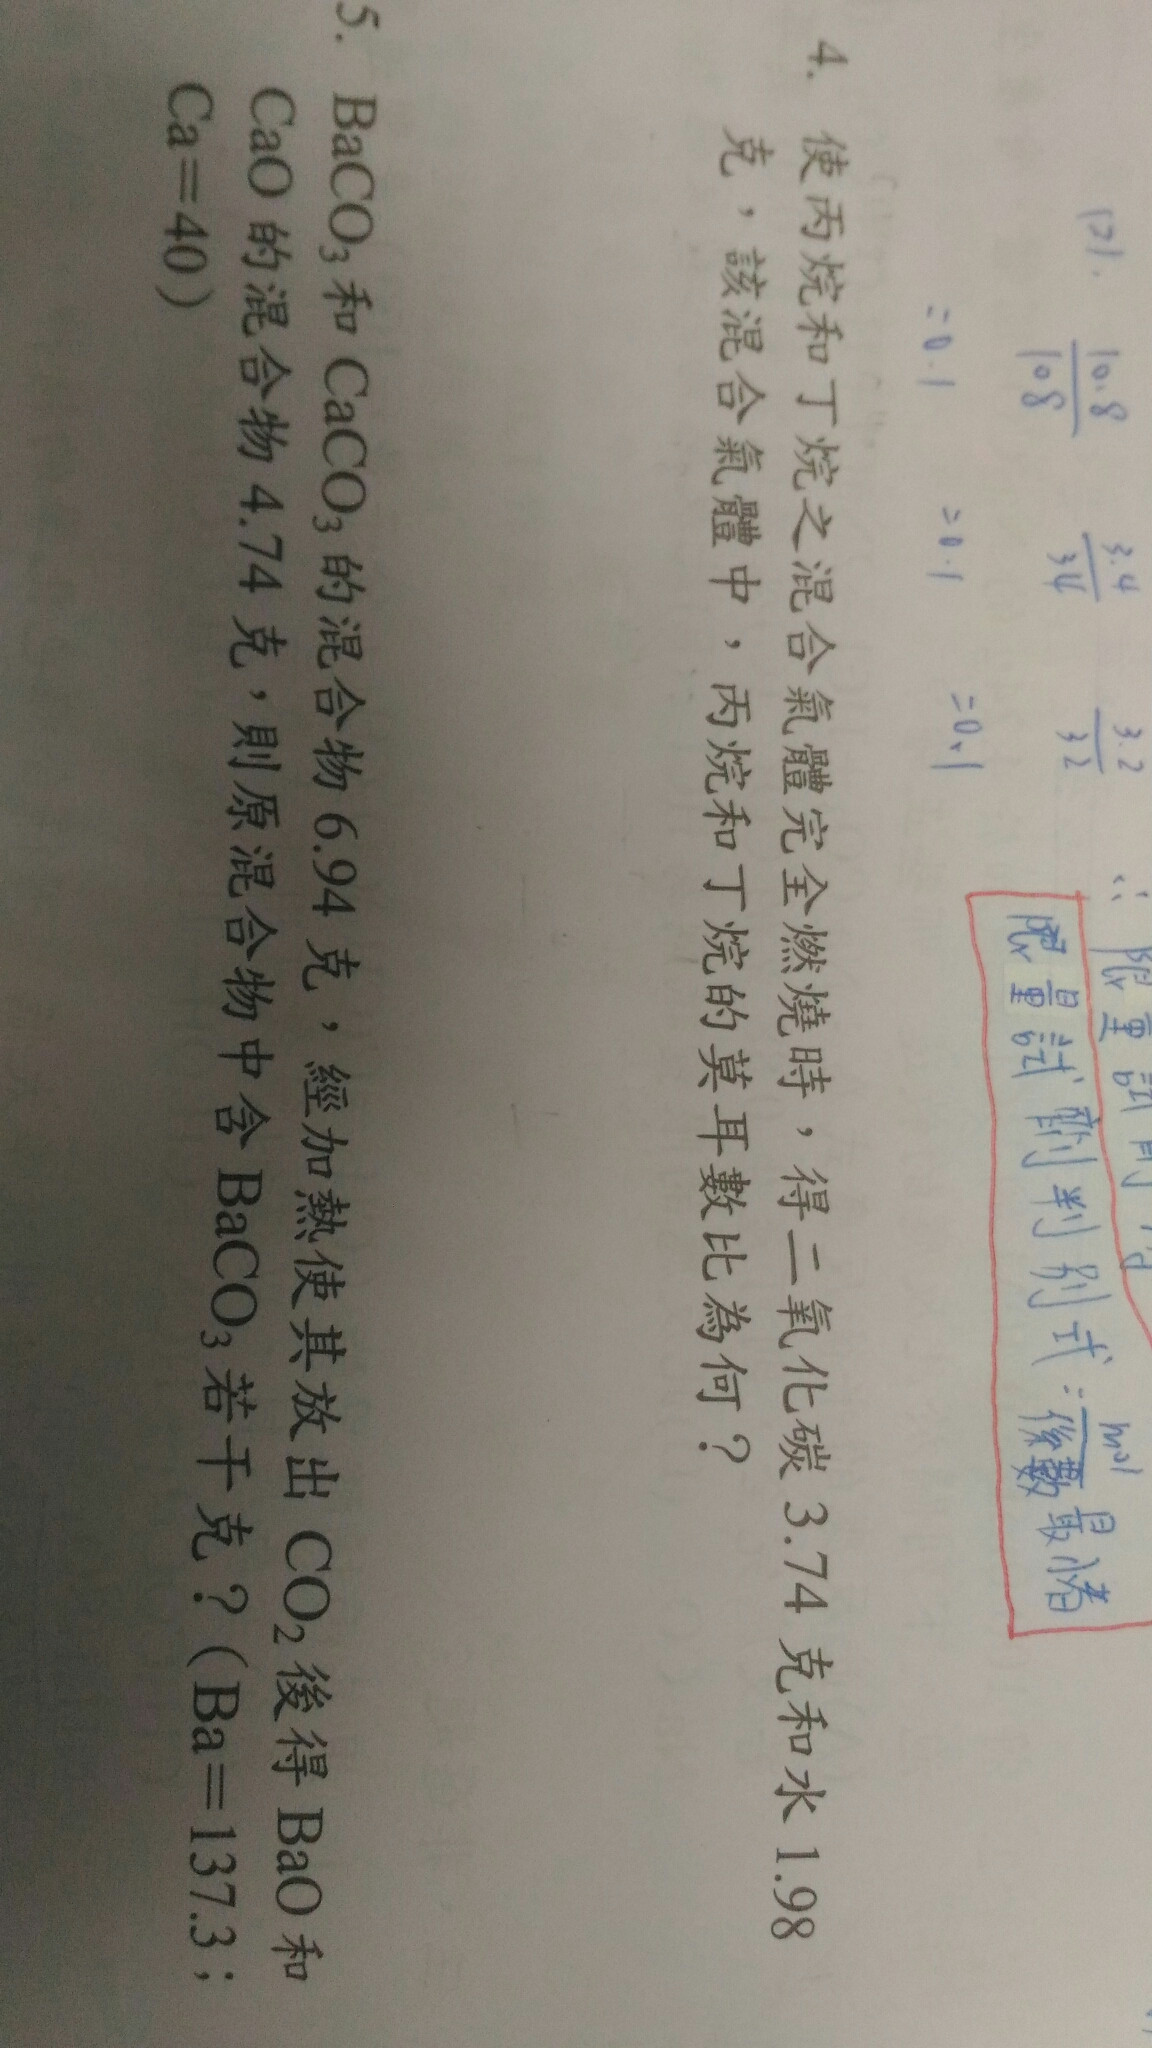 (2).
10.8 3.4 3.2 ∴限量試
108 34 32
=0.1 =0.1 =0.1
限量試劑判別式: mol/係數 最小者
4. 使丙烷和丁烷之混合氣體完全燃燒時，得二氧化碳 3.74 克和水 1.98
克，該混合氣體中，丙烷和丁烷的莫耳數比為何？
5. BaCO₃ 和 CaCO₃ 的混合物 6.94 克，經加熱使其放出 CO₂ 後得 BaO 和
CaO 的混合物 4.74 克，則原混合物中含 BaCO₃ 若干克？(Ba＝137.3；
Ca＝40)